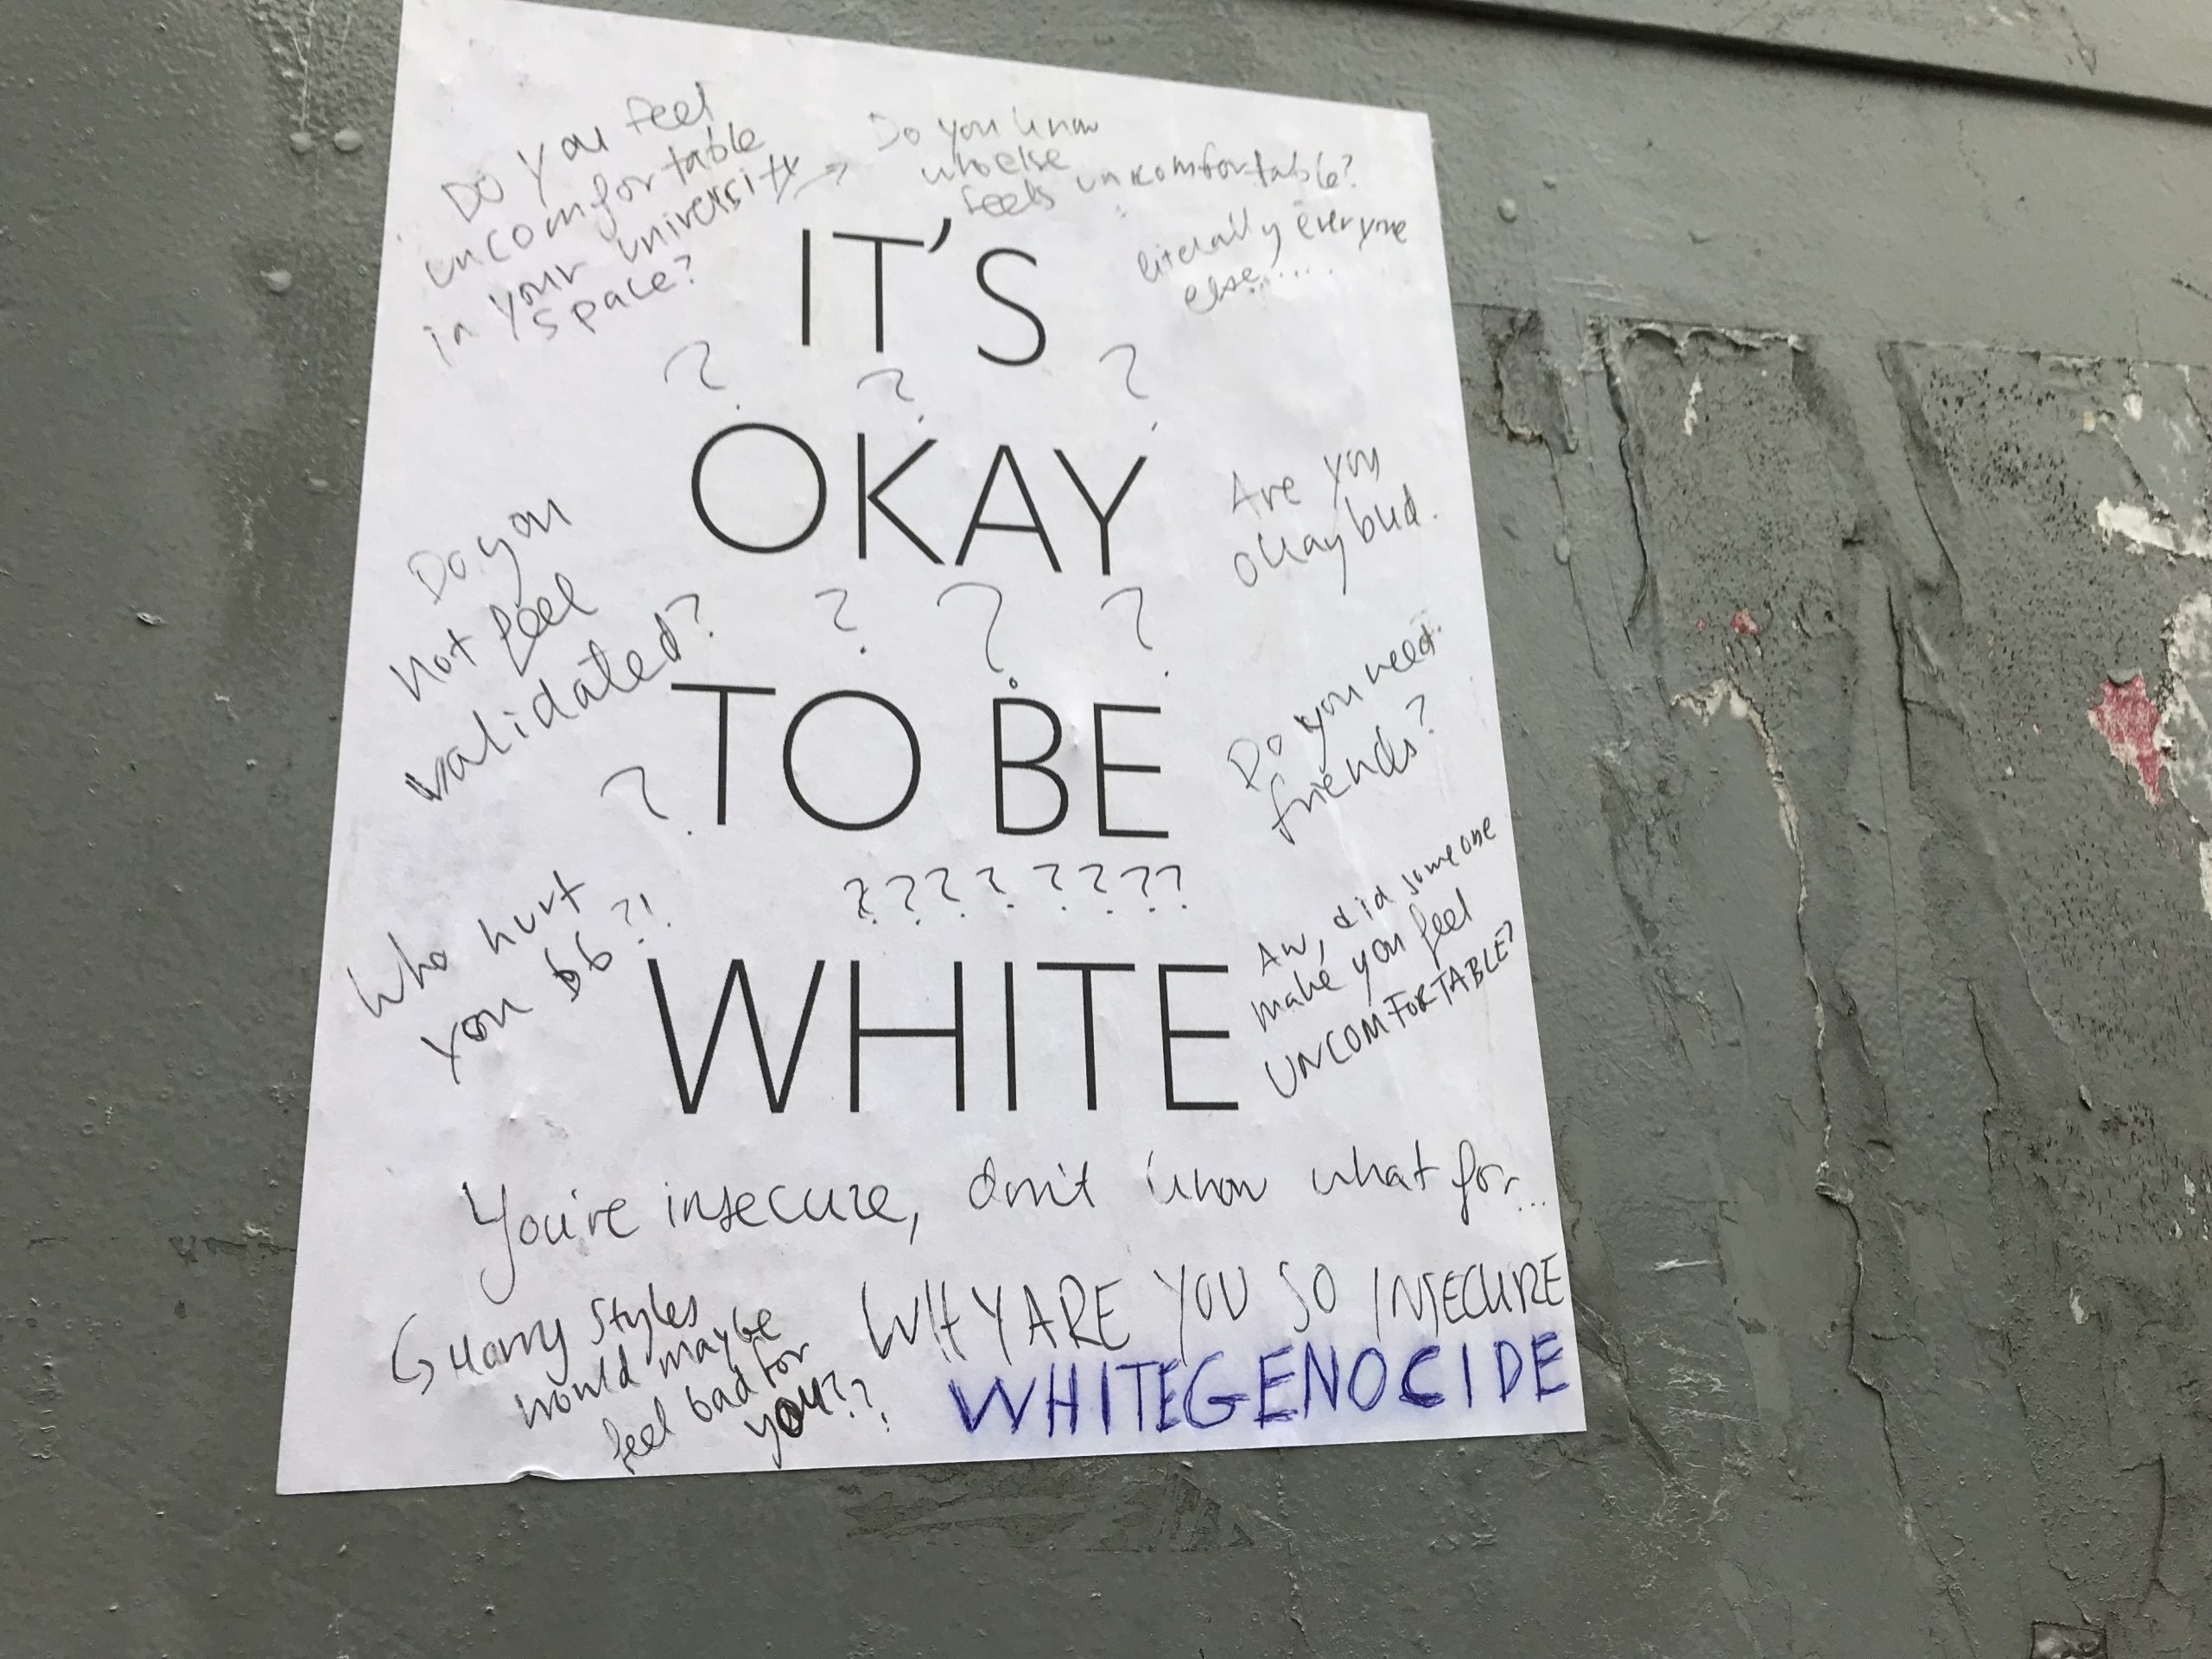 Do You feel
uncomfortable
in your university
space?
Do you know
who else
feels uncomfortable?
literally everyone
else.....
IT'S
? ? ?
OKAY
Are you
okay bud.
Do you
not feel
validated?
? ? ?
TO BE
?
Do you need
friends?
? ? ? ? ? ? ? ?
Who hurt
you bb?!
WHITE
Aw, did someone
make you feel
UNCOMFORTABLE?
You're insecure, don't know what for...
Harry Styles
would maybe
feel bad for
you???
WHY ARE YOU SO INSECURE
WHITEGENOCIDE